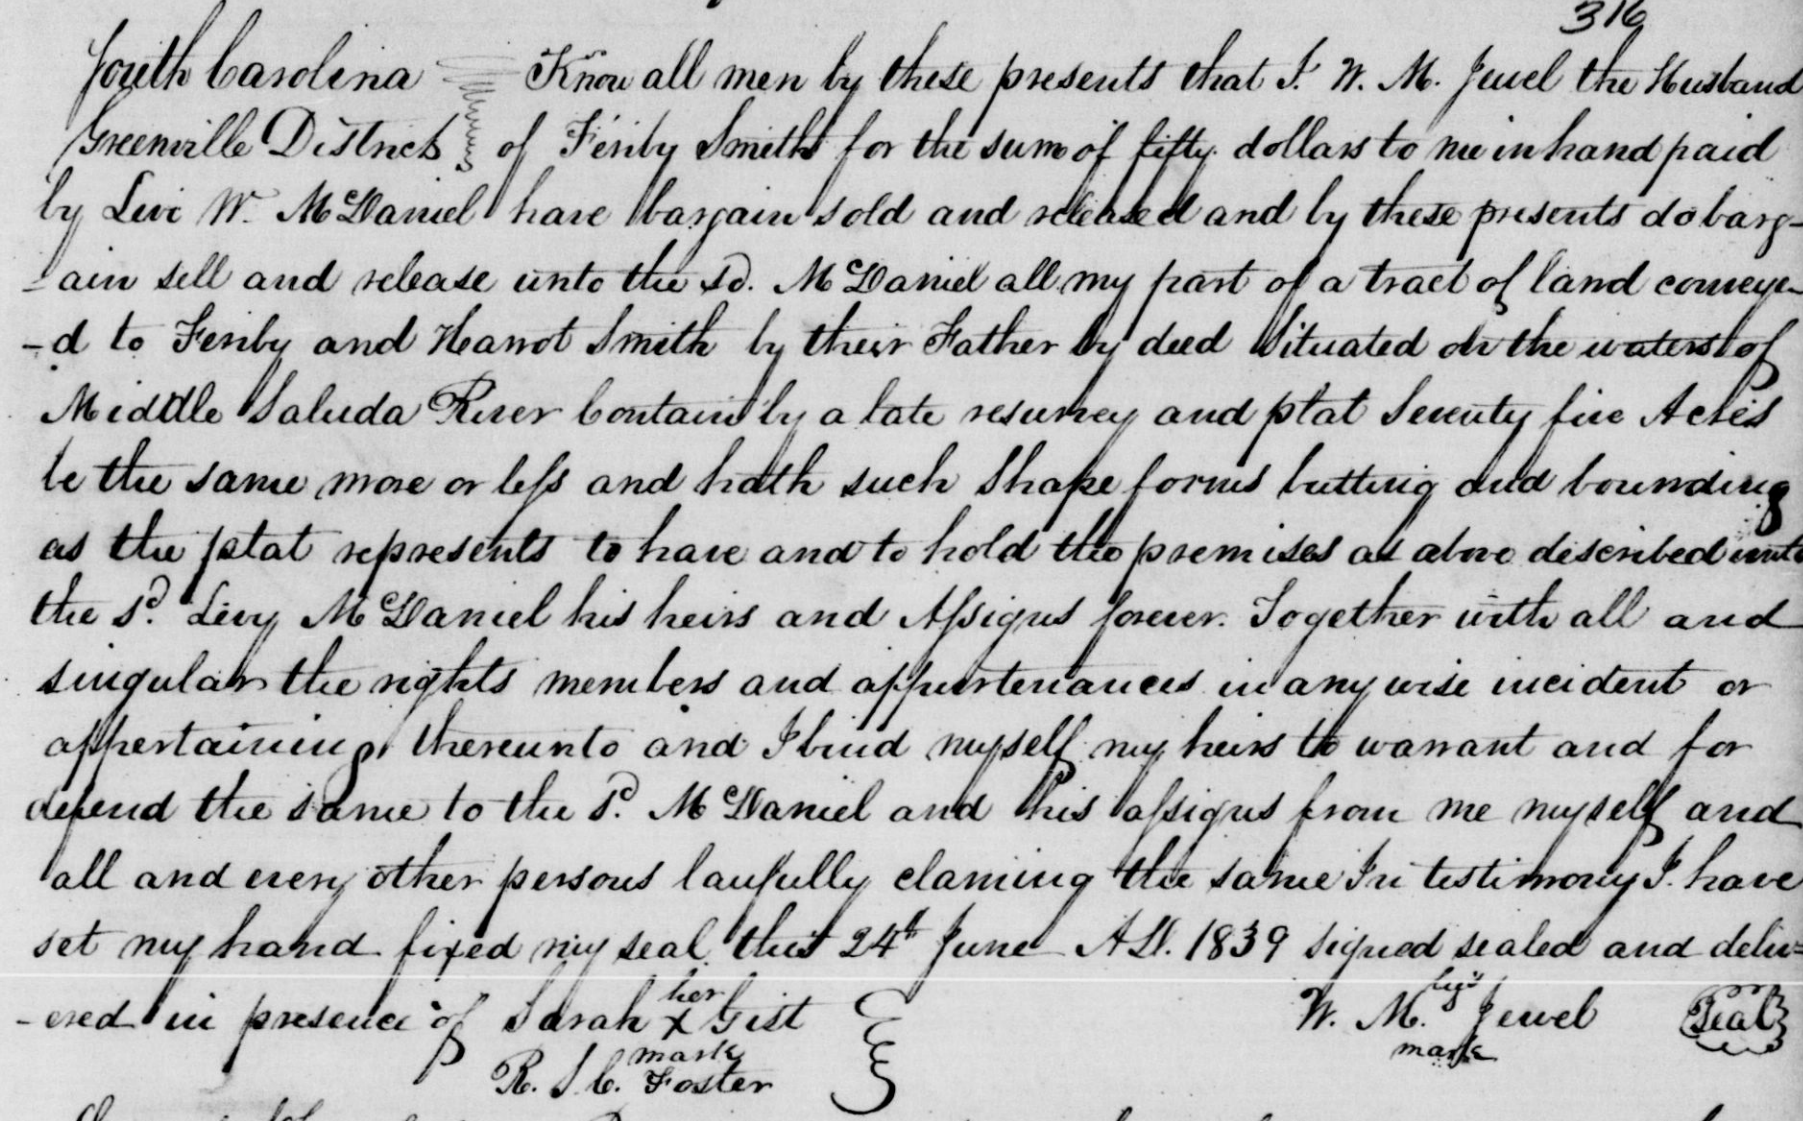 316
South Carolina Know all men by these presents that I. W. M. Jewel the Husband
Greenville District of Feriby Smith for the sum of fifty dollars to me in hand paid
by Levi W. McDaniel have bargain sold and released and by these presents do barg-
-ain sell and release unto the sd. McDaniel all my part of a tract of land conveye-
-d to Feriby and Harrot Smith by their Father by deed Situated on the waters of
Middle Saluda River Contain by a late resurvey and plat Seventy five Acres
be the same more or less and hath such Shape forms butting and bounding
as the plat represents to have and to hold the premises as above described unto
the sd. Levy McDaniel his heirs and Assigns forever. Together with all and
singular the rights members and appurtenances in any wise incident or
appertaining thereunto and I bind myself my heirs to warrant and for
defend the same to the sd. McDaniel and his assigns from me myself and
all and every other persons laufully claming the same In testimony I. have
set my hand fixed my seal this 24th June AD. 1839 signed sealed and deliv-
-ered in presence of Sarah her x mark Gist W. M. his mark Jewel Seal
R. S. C. Foster